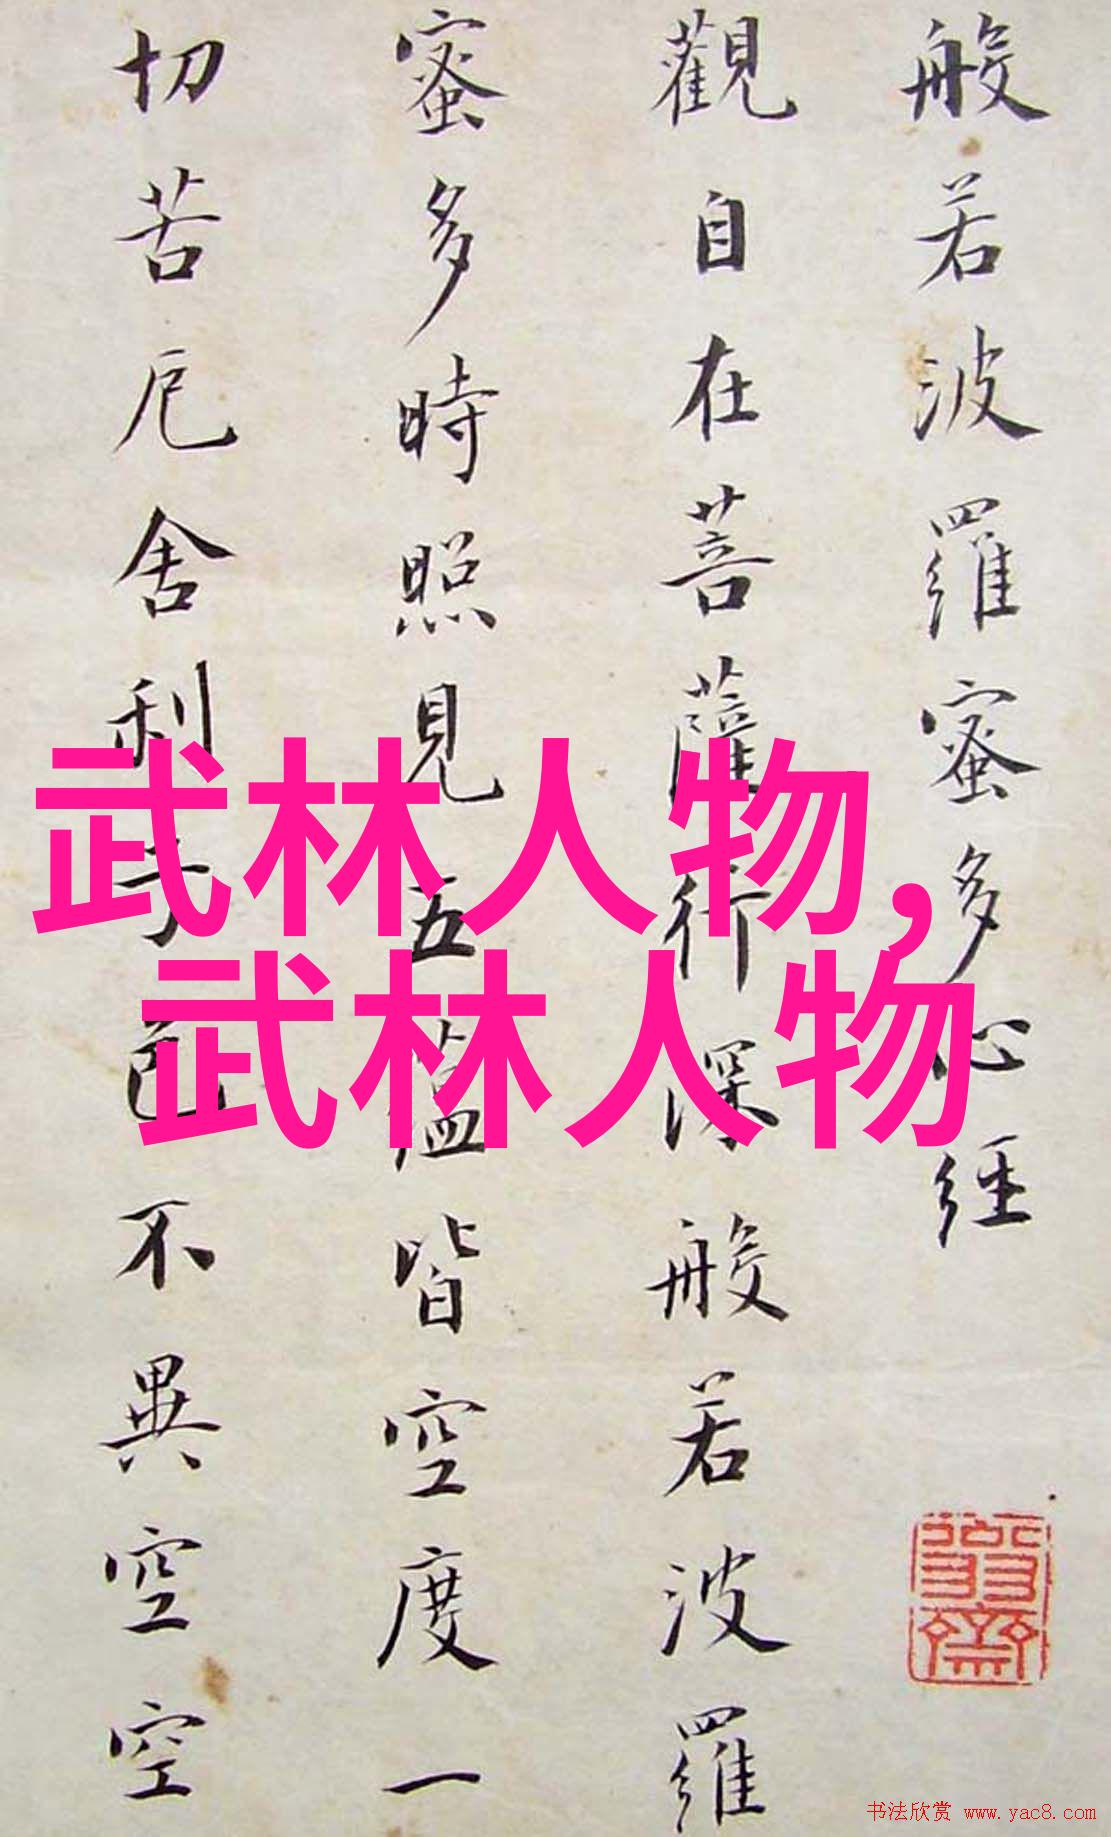 般若波羅蜜多心經
觀自在菩薩行深般若波羅
蜜多時照見五蘊皆空度一
切苦厄舍利子色不異空空
武林人物,
武林人物
书法欣赏 www.yac8.com